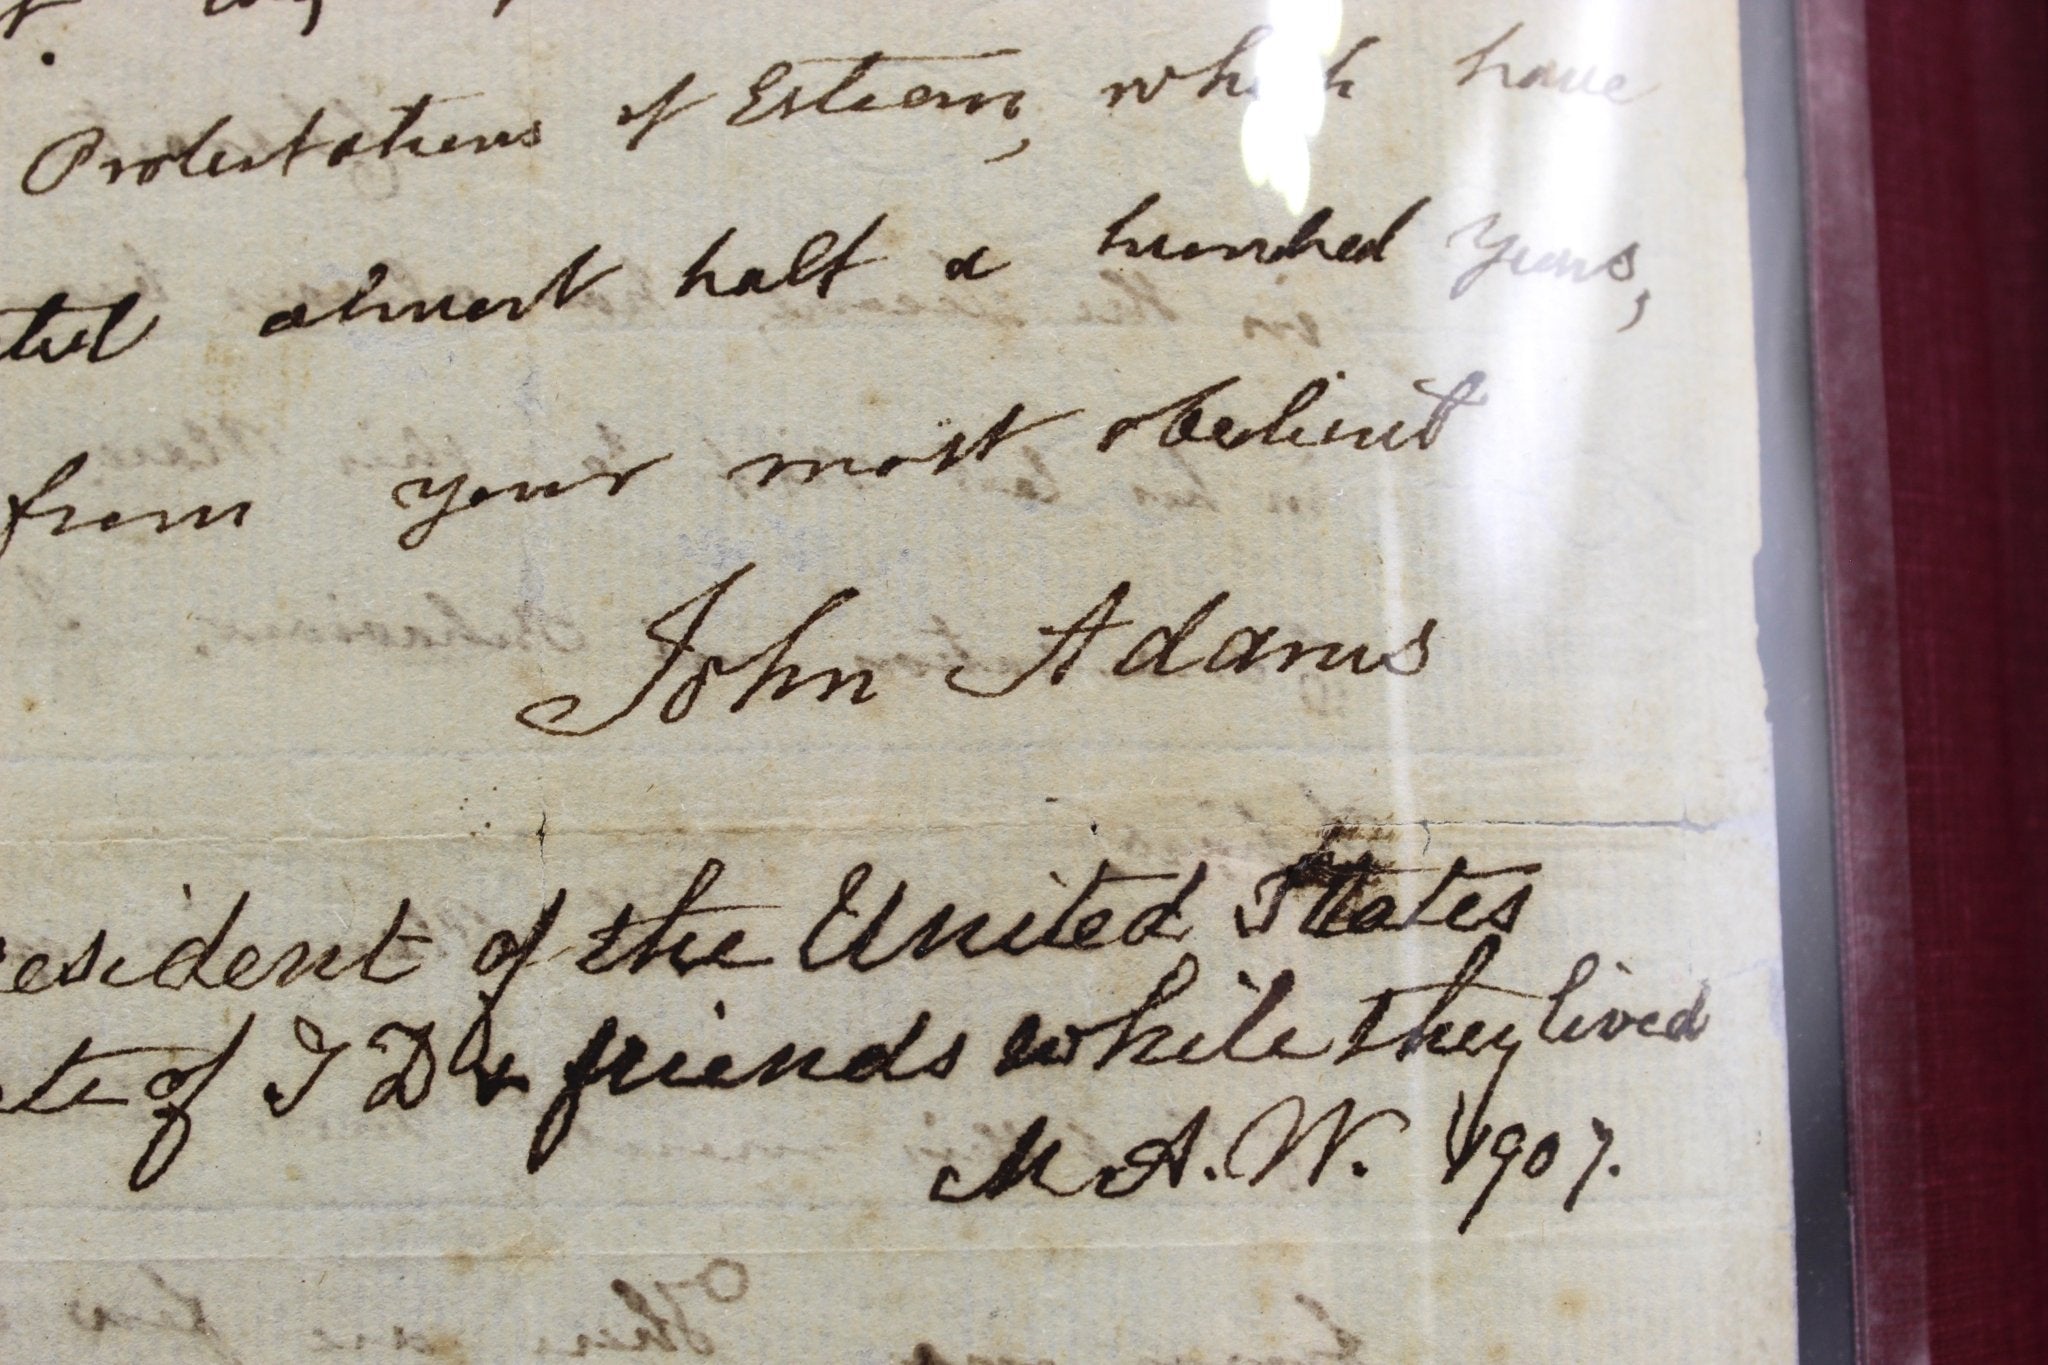 Protestations of Esteem, which have
almost half a hundred years,
from your most obedient
John Adams
esident of the United States
of J D & friends while they lived
M A. W. 1907.